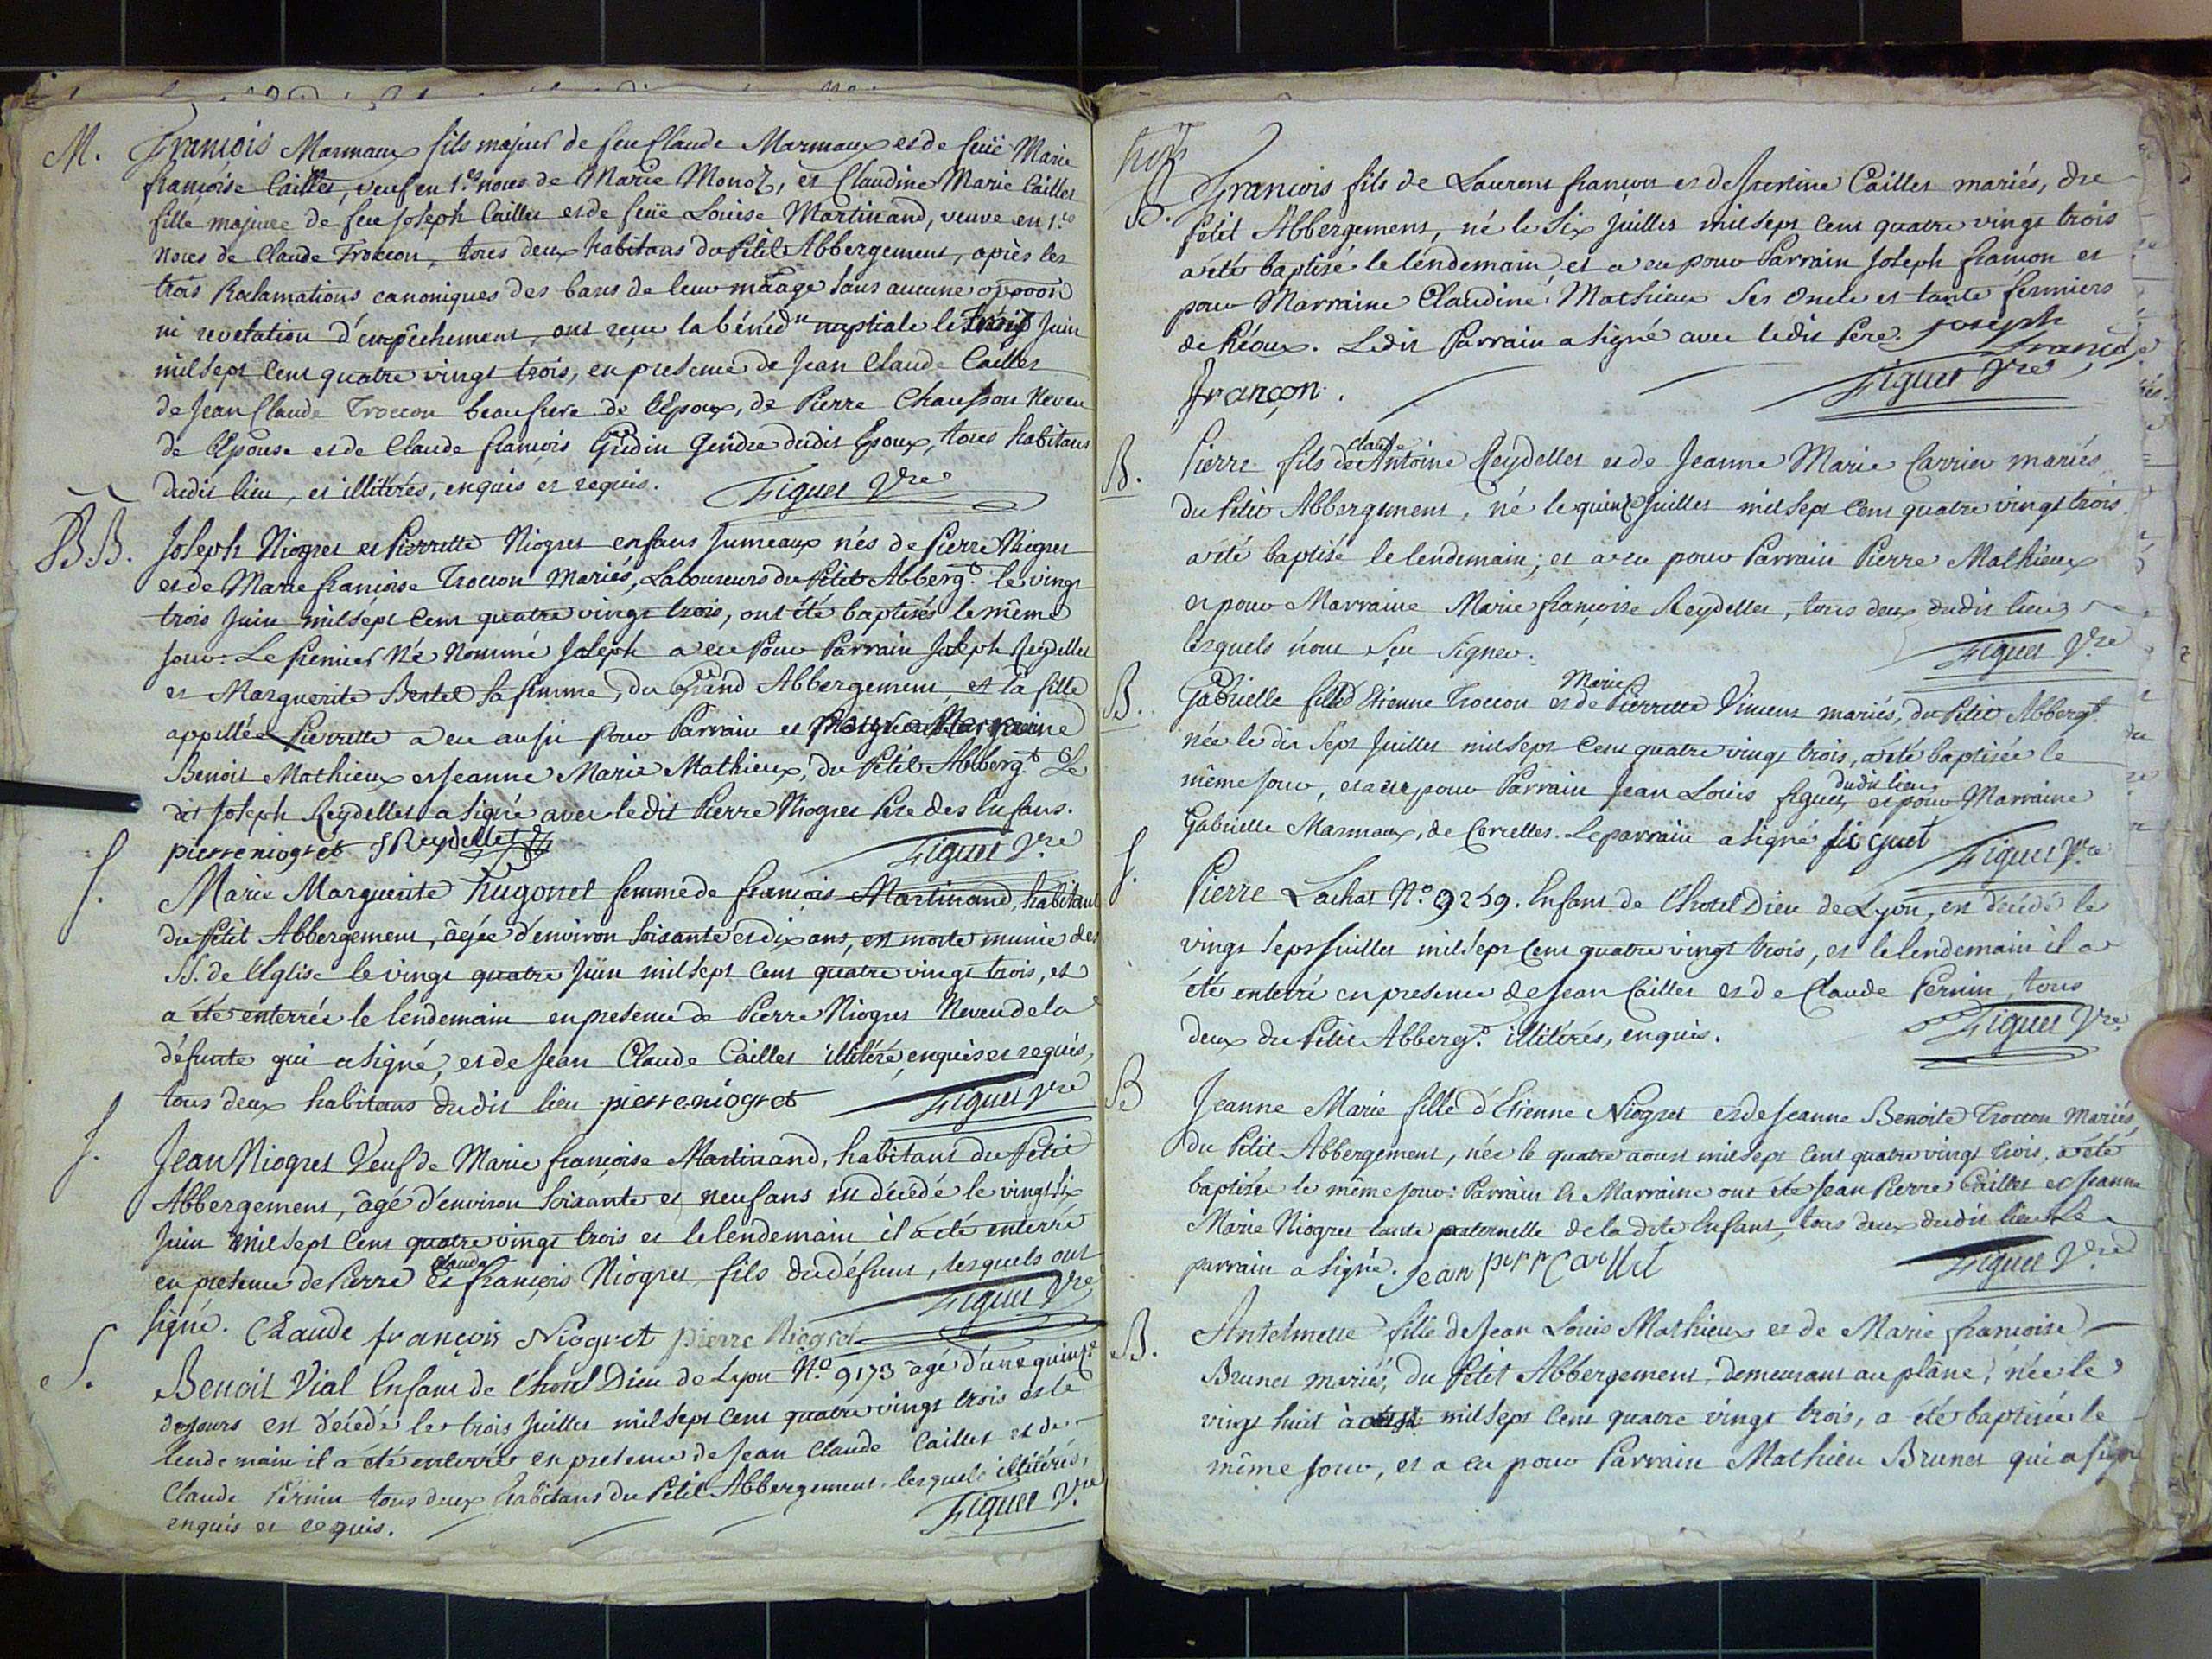 M. François Marmaux fils majeur de feu Claude Marmaux et de feüe Marie
françoise Caillet, veuf en 1.es noces de Marie Monoz, et Claudine Marie Caillet
fille majeure de feu Joseph Caillet et de feüe Louise Martinand, veuve en 1.es
noces de Claude Troccon, tous deux habitans du Petit Abbergement, après les
trois Proclamations canoniques des bans de leur māage sans aucune oppoōn
ni revelation d'empêchement, ont reçu la bénédn nuptiale le Juin
mil sept cent quatre vingt trois, en presence de Jean Claude Caillet
de Jean Claude Troccon beaufrere de l'Epoux, de Pierre Chausson Neveu
de l'Epouse et de Claude françois Gudin Gendre dudit Epoux, tous habitans
dudit lieu, et illitérés, enquis et requis. Figuet Vre
BB. Joseph Niogret et Pierrette Niogret enfans Jumeaux nés de Pierre Niogret
et de Marie françoise Troccon Mariés, Laboureurs du Petit Abbergt. le vingt
trois Juin mil sept cent quatre vingt trois, ont été baptisés le même
jour: Le premier Né Nommé Joseph a eu Pour Parrain Joseph Reydellet
et Marguerite Bertet sa femme, du Grand Abbergement, et la fille
appellée Pierrette a eu aussi pour Parrain et Marraine
Benoit Mathieux et Jeanne Marie Mathieux, du Petit Abbergt. Le
dit Joseph Reydellet a signé avec ledit Pierre Niogret Père des Enfans.
pierre niogret J Reydellet Figuet Vre
S. Marie Marguerite Hugonet femme de françois Martinand, habitant
du Petit Abbergement, âgée d'environ soisante et dix ans, est morte munie des
SS. de l'Eglise le vingt quatre Juin mil sept cent quatre vingt trois, et
a été enterrée le lendemain en presence de Pierre Niogret Neveu de la
défunte qui a signé, et de Jean Claude Caillet illitéré, enquis et requis,
tous deux habitans dudit lieu pierre niogret Figuet Vre
S. Jean Niogret Veuf de Marie françoise Martinand, habitant du Petit
Abbergement, âgé d'environ soixante et neuf ans est décédé le vingt six
Juin mil sept cent quatre vingt trois et le lendemain il a été enterré
en presence de Pierre et Claude françois Niogret fils du défunt, lesquels ont
signé. Claude françois Niogret pierre Niogret Figuet Vre
S. Benoit Vial Enfant de l'hotel Dieu de Lyon N.o 9173 âgé d'une quinze
de jours est décédé le trois Juillet mil sept cent quatre vingt trois et le
lendemain il a été enterré en presence de Jean Claude Caillet et de
Claude Pernin tous deux habitans du Petit Abbergement, lesquels illitérés,
enquis et requis. Figuet Vre
B. François fils de Laurent françon et de Caillet mariés, du
Petit Abbergement, né le six Juillet mil sept cent quatre vingt trois
a été baptisé le lendemain et a eu pour Parrain Joseph françon et
pour Marraine Claudine Mathieux ses Oncle et tante fermiers
de Réoux. Ledit Parrain a signé avec ledit Pere. joseph
françon
françon. Figuet Vre
B. Pierre fils de Claude Antoine Reydellet et de Jeanne Marie Carrier mariés
du Petit Abbergement, né le quinze Juillet mil sept cent quatre vingt trois
a été baptisé le lendemain; et a eu pour Parrain Pierre Mathieux
et pour Marraine Marie françoise Reydellet, tous deux dudit lieu
lesquels n'ont sçu signer. Figuet Vre
B. Gabrielle fille d'Etienne Troccon et de Marie Pierrette Vincent mariés, du Petit Abbergt.
née le dix sept Juillet mil sept cent quatre vingt trois, a été baptisée le
même jour, et a eu pour Parrain Jean Louis figuet, dudit lieu et pour Marraine
Gabrielle Marmaux, de Corcelles. Le parrain a signé figuet Figuet Vre
S. Pierre Lachat N.o 9259. Enfant de l'hotel Dieu de Lyon, est décédé le
vingt sept Juillet mil sept cent quatre vingt trois, et le lendemain il a
étés enterré en presence de Jean Caillet et de Claude Pernin, tous
deux du Petit Abbergt. illitérés, enquis. Figuet Vre
B Jeanne Marie fille d'Etienne Niogret et de Jeanne Benoite Troccon Mariés,
du Petit Abbergement, née le quatre aoust mil sept cent quatre vingt trois, a été
baptisée le même jour: Parrain & Marraine ont été Jean Pierre Caillet et Jeanne
Marie Niogret tante paternelle de la dite Enfant, tous deux dudit lieu. Le
parrain a signé. Jean Figuet Vre
B. Antelmette fille de Jean Louis Mathieux et de Marie françoise
Brunet mariés, du Petit Abbergement, demeurant au plâne, née le
vingt huit aoust mil sept cent quatre vingt trois, a été baptisée le
même jour, et a eu pour Parrain Mathieu Brunet qui a signé